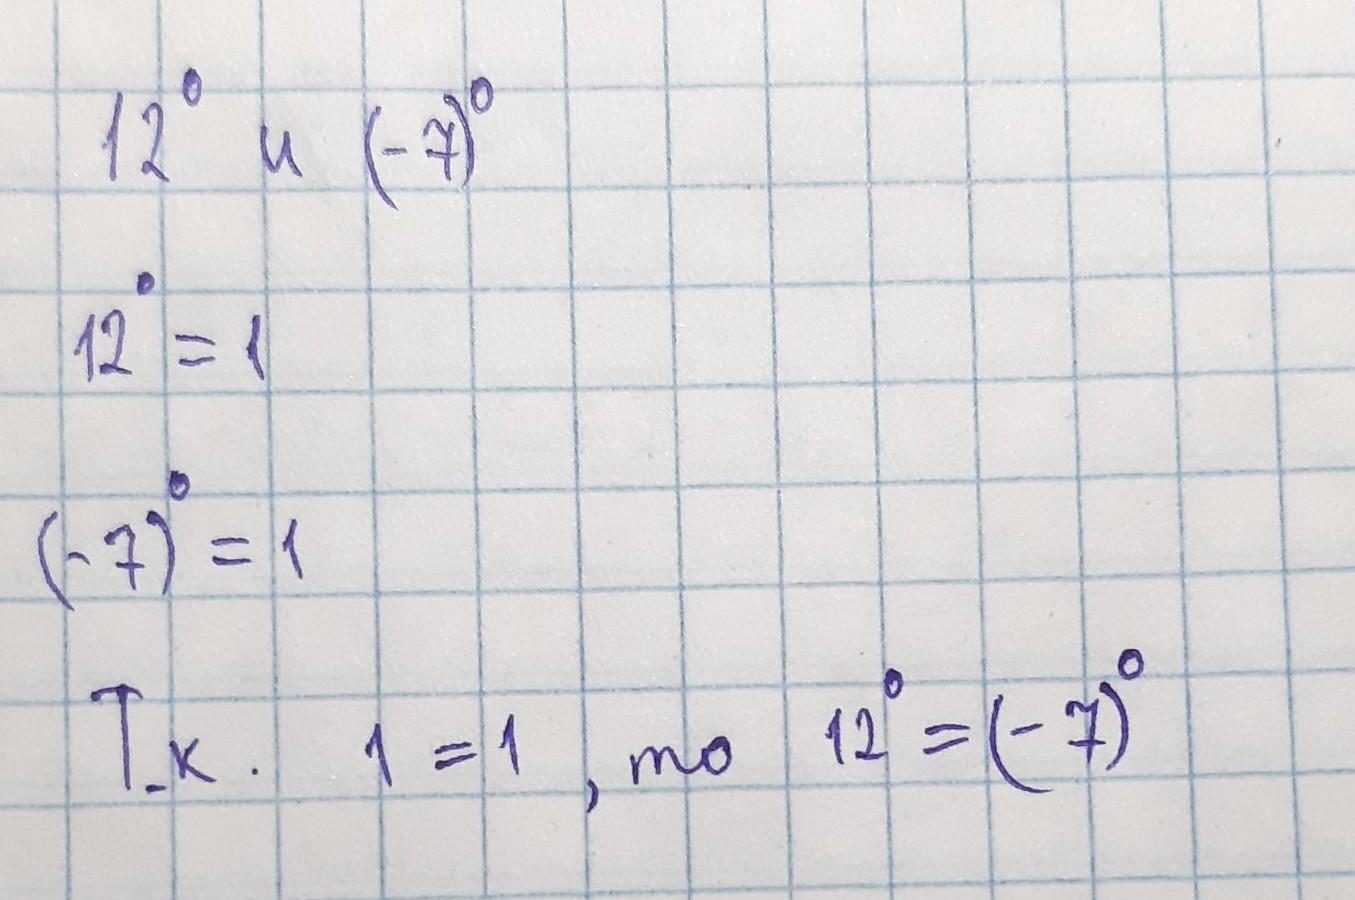 12⁰ и (-7)⁰
12⁰ = 1
(-7)⁰ = 1
Т.к. 1 = 1, то 12⁰ = (-7)⁰